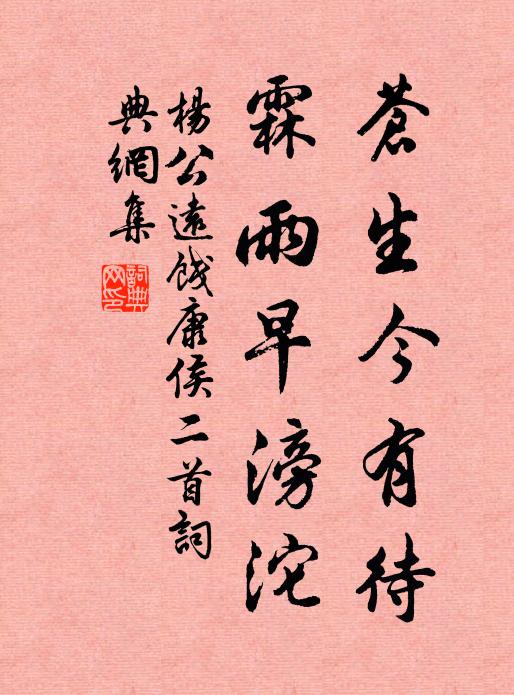 蒼生今有待
霖雨早滂沱
楊公遠餞康侯二首詞
典網集
詞典
网印